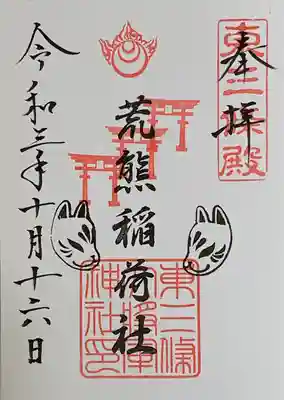 奉拝
東三條殿
荒熊稲荷社
東三條
將軍
神社印
令和三年十月十六日